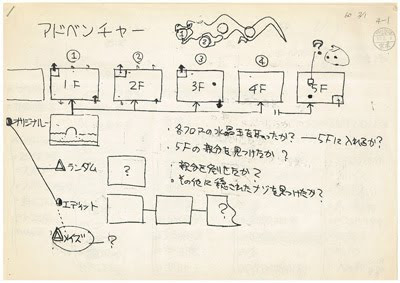 4-1
アドベンチャー
① ② ③ ④ ⑤
?
1F 2F 3F 4F 5F
オリジナル
・各フロアの水晶玉を取ったか? 5Fに入れるか?
・5Fの 分を見つけたか?
ランダム ?
・ 分を たか?
・その他に隠されたナゾを見つけたか?
エディット ?
メイズ ?